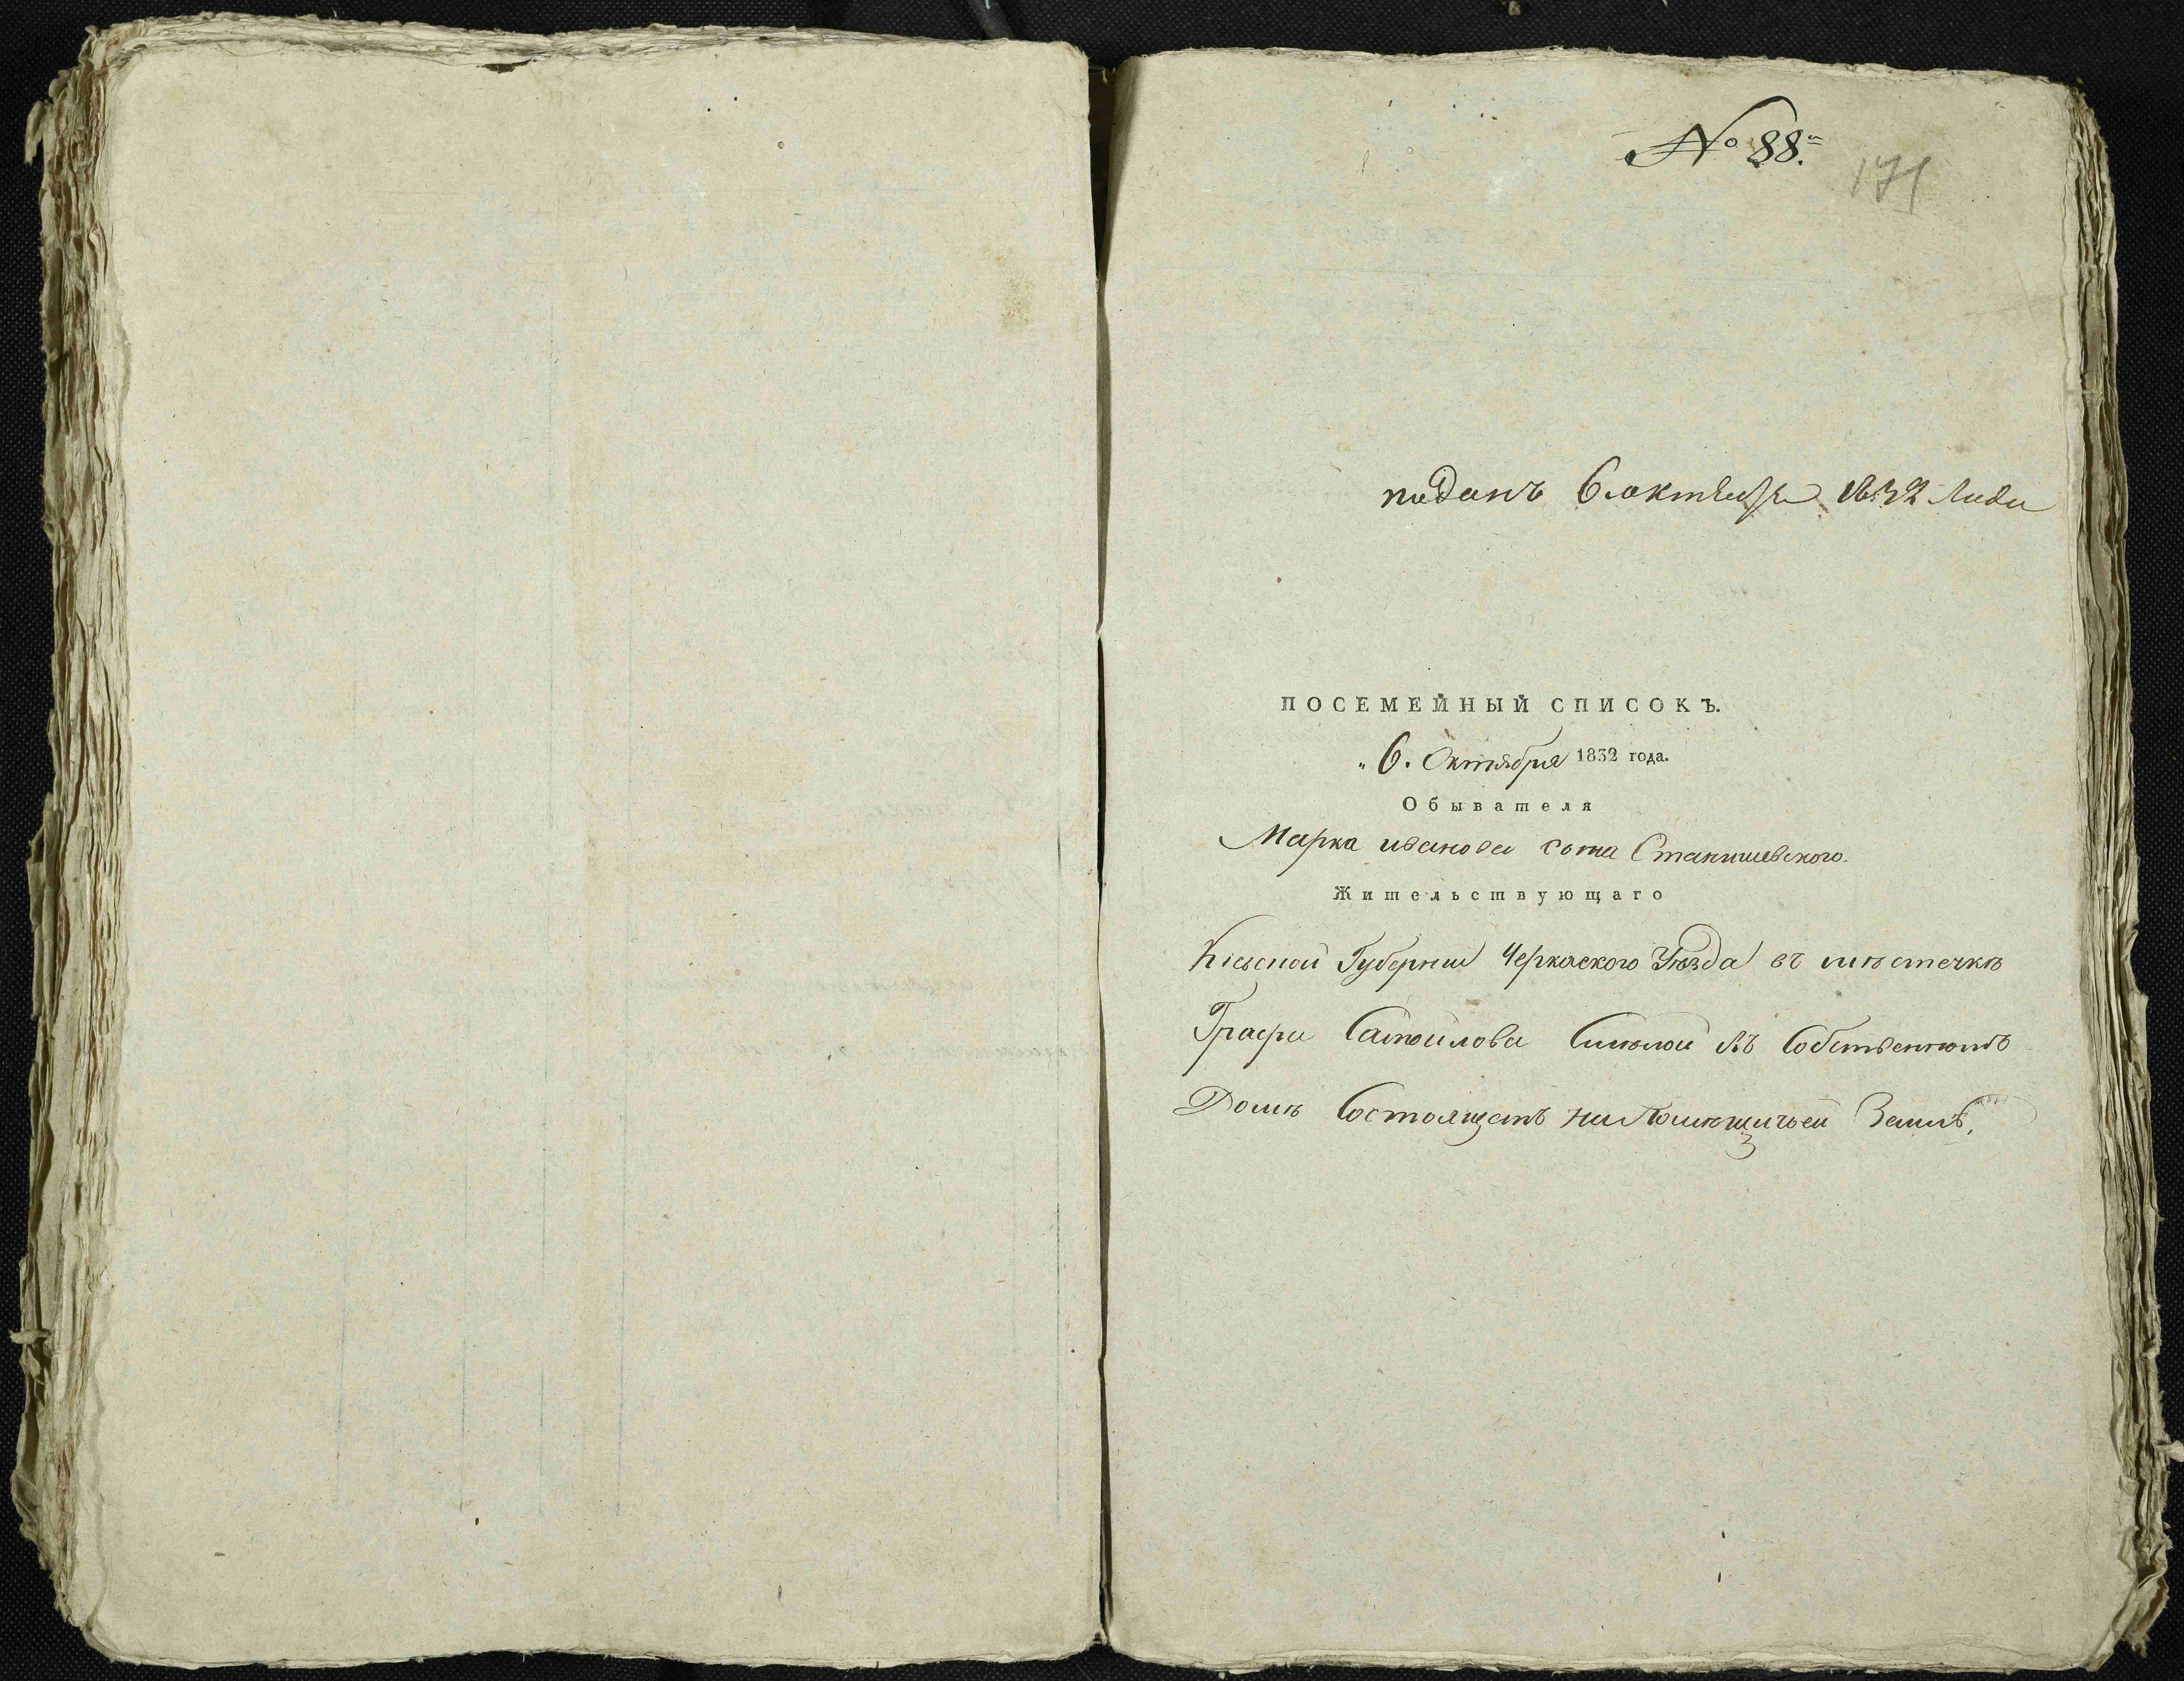 № 88.й
171
поданъ 6 октября 1832 года
ПОСЕМЕЙНЫЙ СПИСОКЪ.
„ 6. Октября 1832 года.
Обывателя
Марка иванова сына Станишевского.
Жительствующаго
Кіевской Губерніи Черкаского Уѣзда въ мѣстечкѣ
Графа Самойлова Смѣлой въ Собственномъ
Домѣ Состоящемъ на Помѣщичьей Землѣ,